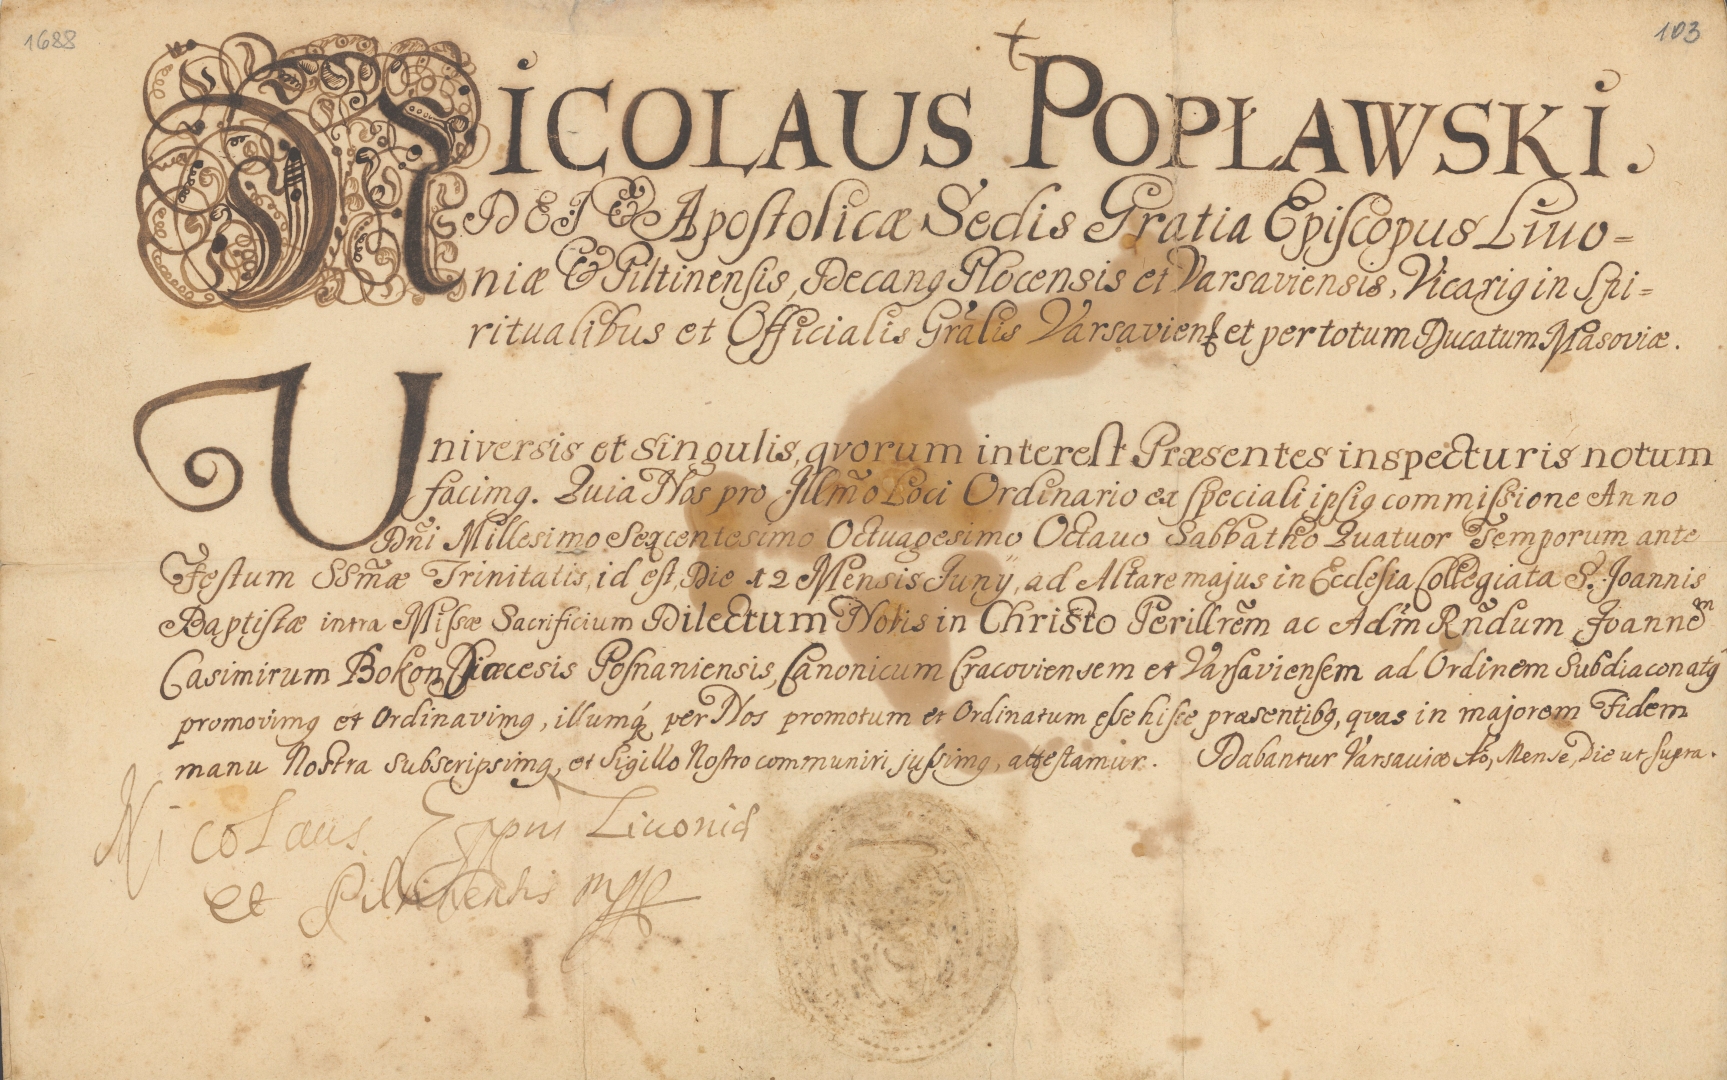 1688
103
NICOLAUS POPŁAWSKI.
DEI & Apostolicæ Sedis Gratia Episcopus Livo=
niæ & Piltinensis, Decanꝰ Plocensis et Varsaviensis, Vicariꝰ in Spi=
ritualibus et Officialis Grãlis Varsavienẜ et per totum Ducatum Masoviæ.
Universis et singulis, qvorum interest Præsentes inspecturis notum
facimꝰ. Quia Nos pro Illm̃o Loci Ordinario ex speciali ipsiꝰ commissione Anno
Dñi Millesimo Sexcentesimo Octuagesimo Octavo Sabbatho Quatuor Temporum ante
Festum SSm̃æ Trinitatis, id est, Die 12 Mensis Junÿ, ad Altare majus in Ecclesia Collegiata S. Joannis
Baptistæ intra Missæ Sacrificium Dilectum Nobis in Christo Perillrẽm ac Adm̃ Rñdum Joannem
Casimirum Bokon Diœcesis Posnaniensis, Canonicum Cracoviensem et Varsaviensem ad Ordinem Subdiaconatꝰ
promovimꝰ et Ordinavimꝰ, illumq́ꝫ per Nos promotum et Ordinatum esse hisce præsentibꝰ, qvas in majorem Fidem
manu Nostra subscripsimꝰ, et Sigillo Nostro communiri jussimꝰ, attestamur. Dabantur Varsaviæ Aõ, Mense, Die ut supra.
Nicolaus Eppus Livoniæ
et Piltinensis mpp